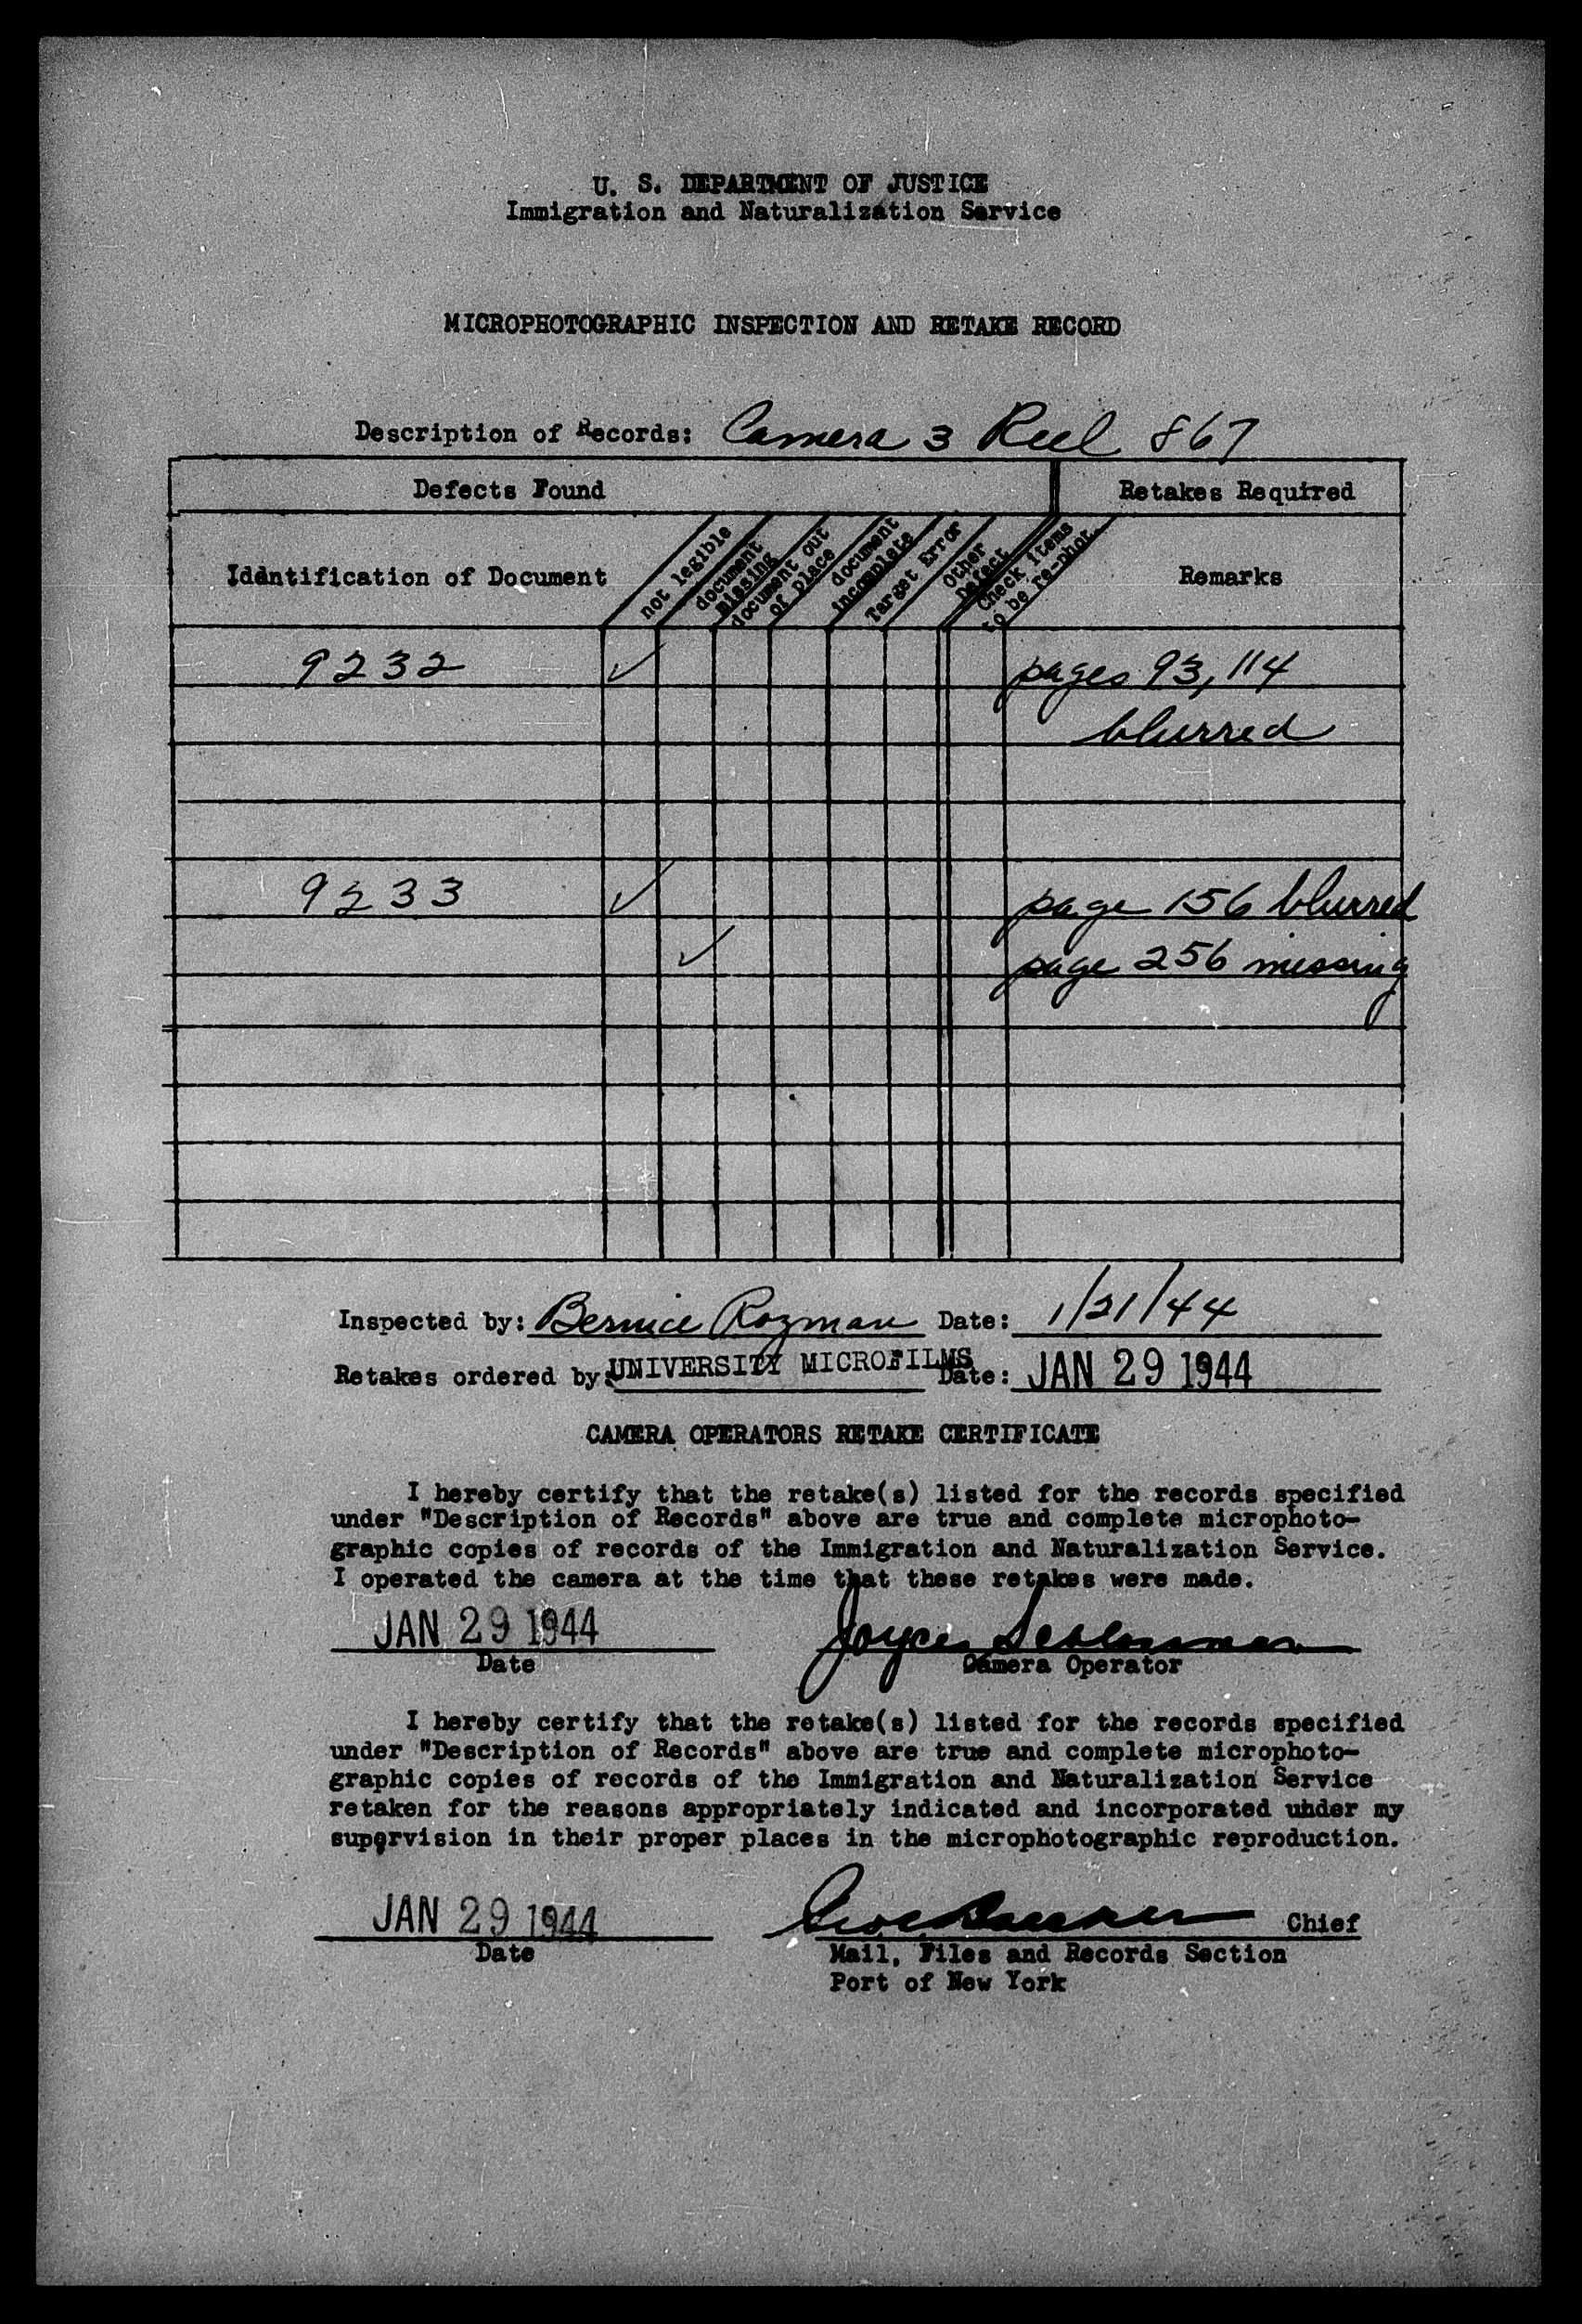 U. S. DEPARTMENT OF JUSTICE
Immigration and Naturalization Service
MICROPHOTOGRAPHIC INSPECTION AND RETAKE RECORD
Description of Records: Camera 3 Reel 867
Defects Found
Retakes Required
Identification of Document
not legible
document missing
document out of place
document incomplete
Target Error
Other Defect
Check items to be re-phot.
Remarks
9232 ✓ pages 93, 114
blurred
9233 ✓ page 156 blurred
✓ page 256 missing
Inspected by: Bernice Rozman Date: 1/21/44
Retakes ordered by: UNIVERSITY MICROFILMS Date: JAN 29 1944
CAMERA OPERATORS RETAKE CERTIFICATE
I hereby certify that the retake(s) listed for the records specified
under "Description of Records" above are true and complete microphoto-
graphic copies of records of the Immigration and Naturalization Service.
I operated the camera at the time that these retakes were made.
JAN 29 1944 Joyce
Date Camera Operator
I hereby certify that the retake(s) listed for the records specified
under "Description of Records" above are true and complete microphoto-
graphic copies of records of the Immigration and Naturalization Service
retaken for the reasons appropriately indicated and incorporated under my
supervision in their proper places in the microphotographic reproduction.
JAN 29 1944 Chief
Date Mail, Files and Records Section
Port of New York